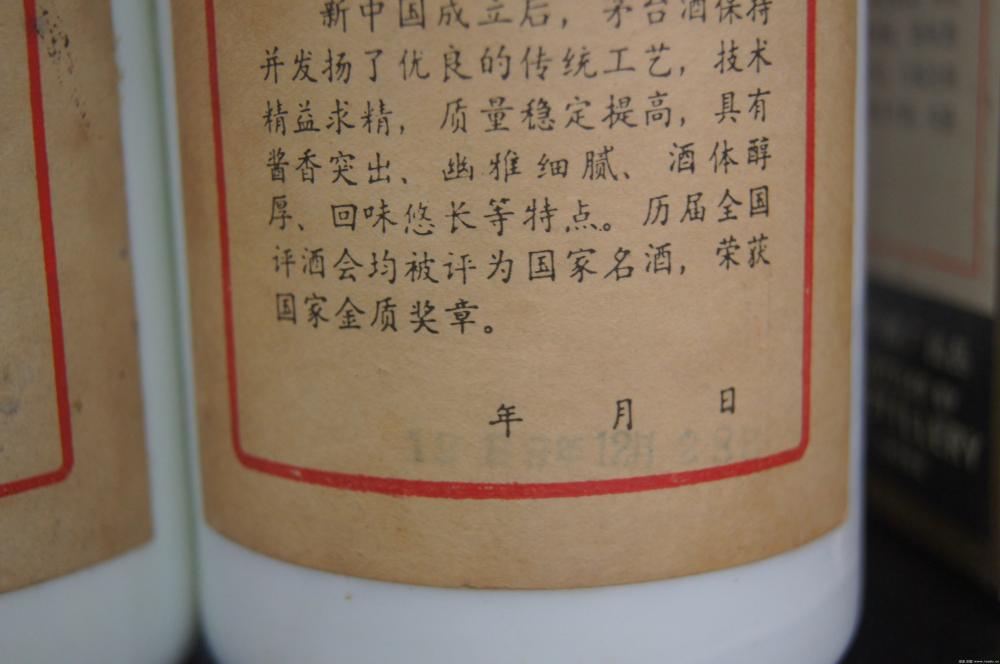 新中国成立后，茅台酒保持
并发扬了优良的传统工艺，技术
精益求精，质量稳定提高，具有
酱香突出、幽雅细腻、酒体醇
厚、回味悠长等特点。历届全国
评酒会均被评为国家名酒，荣获
国家金质奖章。
年 月 日
年12月2